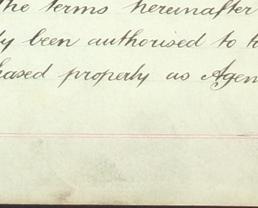 the terms hereinafter
ly been authorised to
hased property as Agen